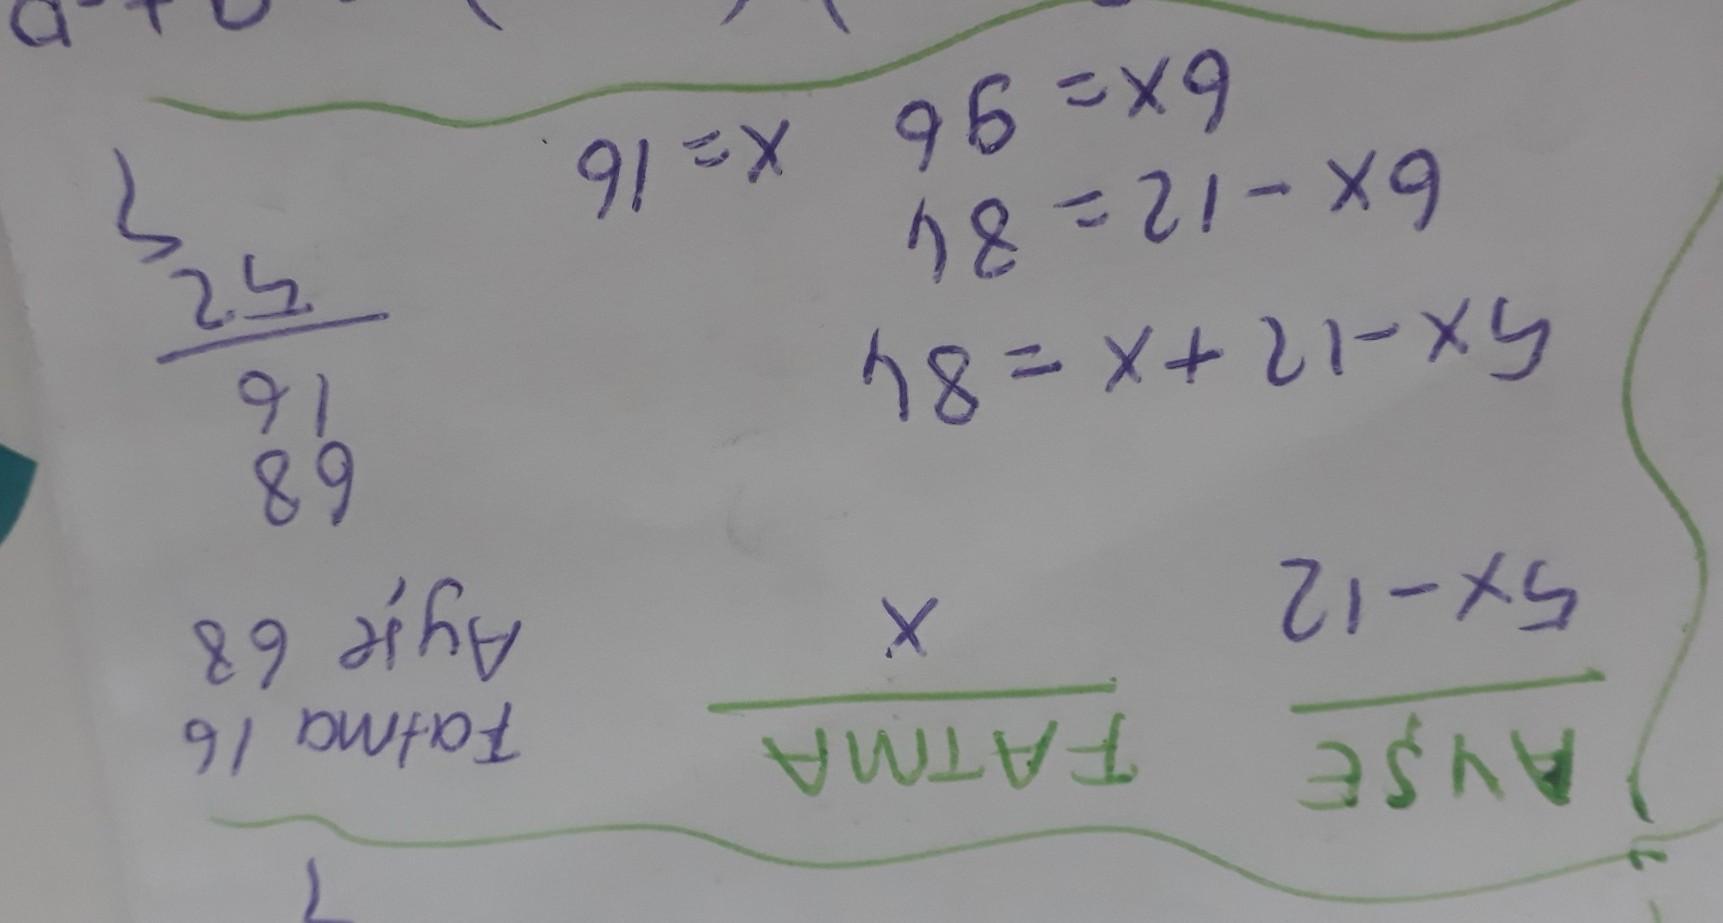 AYŞE FATMA
5x-12 x
Fatma 16
Ayşe 68
5x-12+x=84
6x-12=84
6x=96 x=16
68
16
52